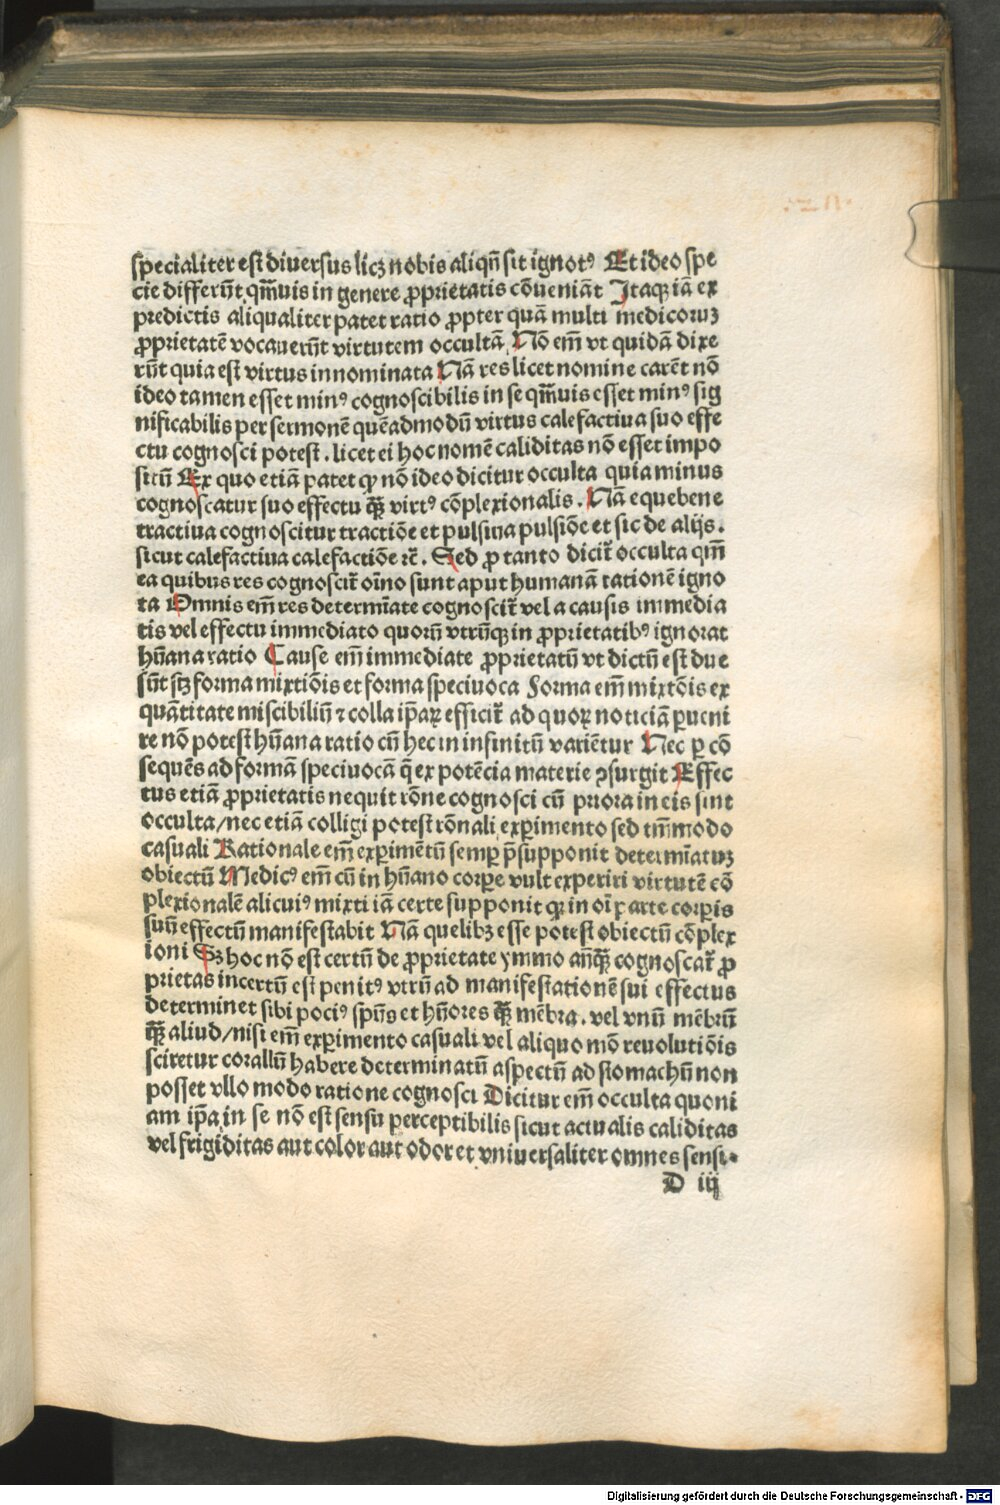 specialiter est diuersus licꝫ nobis aliqn̄ sit ignotꝰ Et ideo spe
cie differūt qm̄uis in genere ꝓprietatis cōueniāt Itaqꝫ iā ex
predictis aliqualiter patet ratio ꝓpter quā multi medicoruꝫ
ꝓprietatē vocauerūt virtutem occultā Nō em̄ vt quidā dixe
rūt quia est virtus innominata Nā res licet nomine carēt nō
ideo tamen esset minꝰ cognoscibilis in se qm̄uis esset minꝰ sig
nificabilis per sermonē quēadmodū virtus calefactiua suo effe
ctu cognosci potest . licet ei hoc nomē caliditas nō esset impo
situ̅ Ex quo etiā patet ꝙ nō ideo dicitur occulta quia minus
cognoscatur suo effectu q̄ꝫ virtꝰ cōplexionalis . Nā eque bene
tractiua cognoscitur tractiōe et pulsiua pulsiōe et sic de alijs .
sicut calefactiua calefactiōe ꝛc̄ . Sed ꝓ tanto dicit̄ occulta qm̄
ea quibus res cognoscit̄ oīno sunt aput humanā rationē igno
ta Omnis em̄ res determīate cognoscit̄ vel a causis immedia
tis vel effectu immediato quorū vtrūqꝫ in ꝓprietatibꝰ ignorat
hūana ratio Cause em̄ immediate ꝓprietatū vt dictū est due
sūt sꝫ forma mixtiōis et forma speciuoca Forma em̄ mixtōis ex
quātitate miscibiliū ⁊ colla ip̄aꝝ efficit̄ ad quoꝝ noticiā ꝑueni
re nō potest hūana ratio cū hec in infinitū variētur Nec ꝑ cō
sequēs ad formā speciuocā q̄ ex potēcia materie ꝯsurgit Effec
tus etiā ꝓprietatis nequit rōne cognosci cū priora in eis sint
occulta/nec etiā colligi potest rōnali exꝑimento sed tm̄modo
casuali Rationale em̄ exꝑimētū semꝑ p̄supponit determīatuꝫ
obiectū Medicꝰ em̄ cū in hūano corꝑe vult experiri virtutē cō
plexionalē alicuiꝰ mixti iā certe supponit qꝛ in oī parte corꝑis
suū effectū manifestabit Nā quelibꝫ esse potest obiectū cōplex
ioni Sꝫ hoc nō est certū de ꝓprietate ymmo anq̄ꝫ cognoscat̄ ꝓ
prietas incertū est penitꝰ vtrū ad manifestationē sui effectus
determinet sibi pociꝰ spūs et hūores q̄ꝫ mēbra . vel vnū mēbrū
q̄ꝫ aliud/nisi em̄ exꝑimento casuali vel aliquo mō reuolutiōis
sciretur corallū habere determinatū aspectū ad stomachū non
posset vllo modo ratione cognosci Dicitur em̄ occulta quoni
am ip̄a in se nō est sensu perceptibilis sicut actualis caliditas
vel frigiditas aut color aut odor et vniuersaliter omnes sensi-
D iij
Digitalisierung gefördert durch die Deutsche Forschungsgemeinschaft - DFG